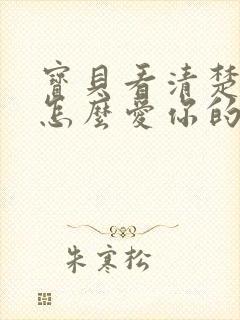 寶貝看清楚
怎麼愛你的
朱寒松